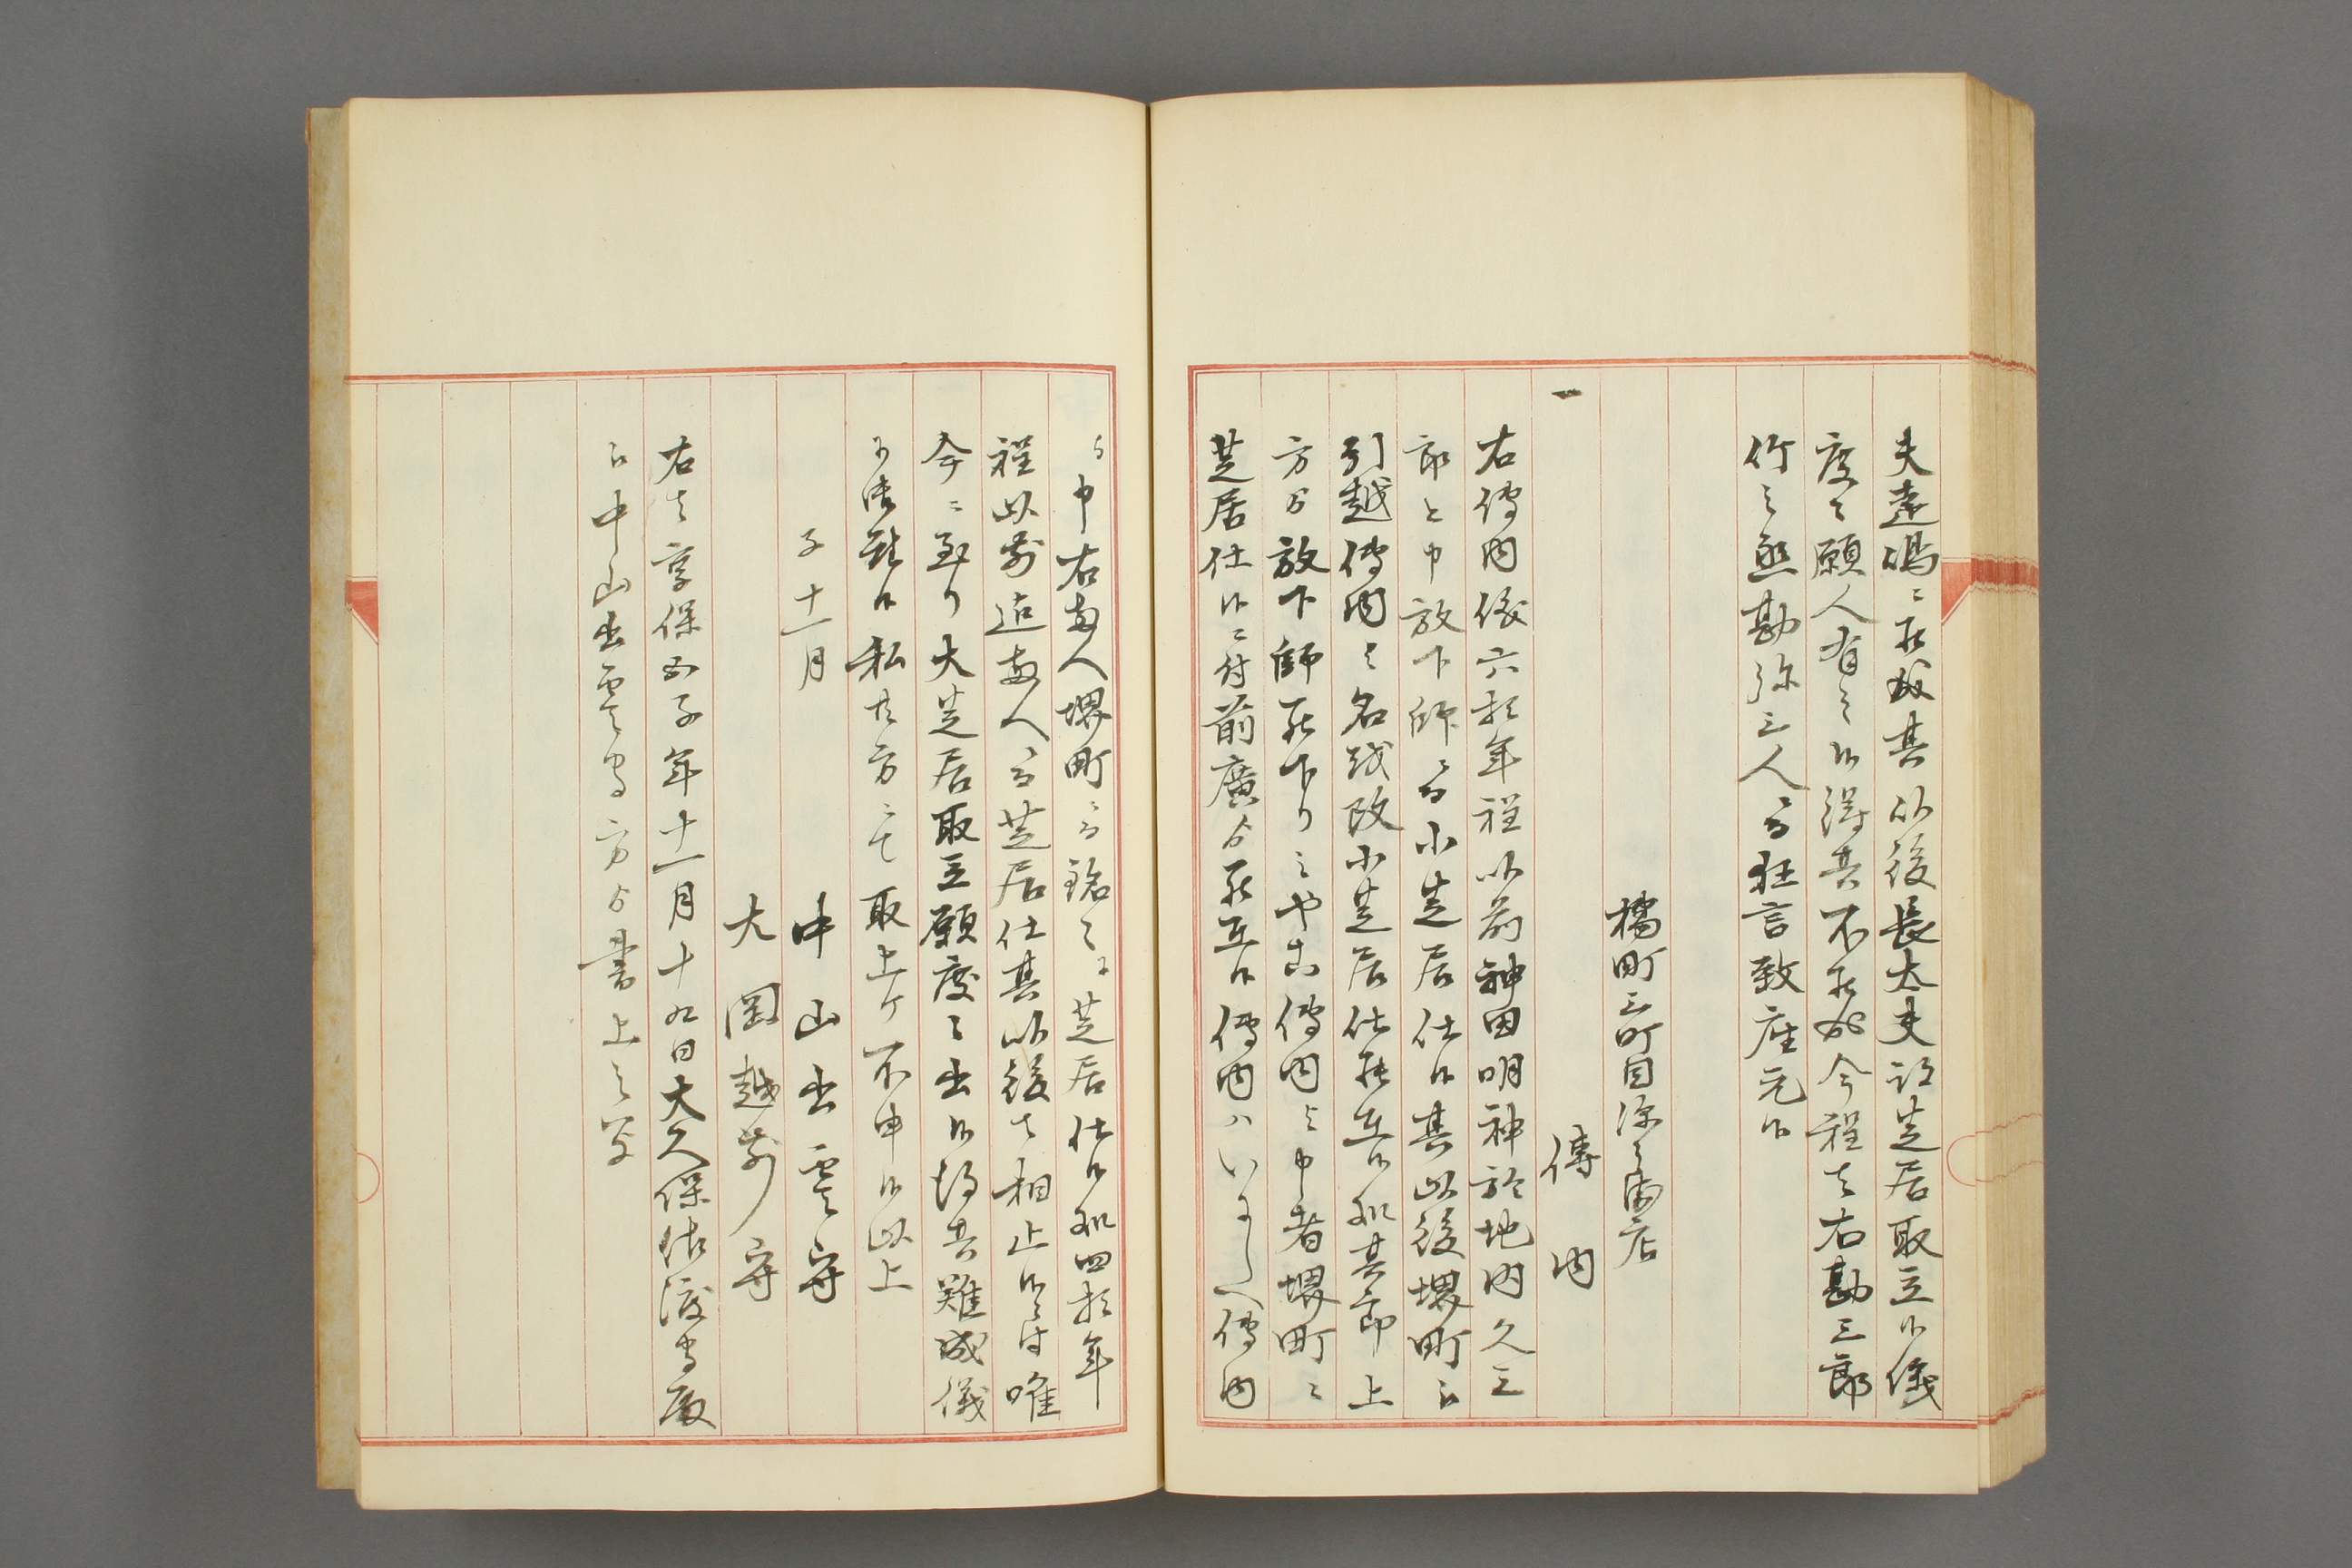 夫遠嶋ニ罷成其以後長太夫跡芝居取立候儀
度々願人有之候得共不罷成今程者右勘三郎
竹之丞勘弥三人ニ而狂言致座元候
橘町三町目源兵衛店
一 傳内
右傳内儀六拾年程以前神田明神於地内久三
郎と申放下師ニ而小芝居仕候其以後堺町江
引越傳内と名改小芝居仕罷在候処其節上
方ゟ放下師罷下りミや古傳内と申者堺町ニ
芝居仕候ニ付前廣ゟ罷在候傳内ハいにしへ傳内
与申右両人堺町ニ而銘々に芝居仕候処四拾年
程以前迄両人ニ而芝居仕其以後者相止候ニ付唯
今ニ至り大芝居取立願度々出候得共難成儀
に御座候私共方ニ而取上ケ不申候以上
子十一月
中山出雲守
大岡越前守
右者享保五子年十一月十九日大久保佐渡守殿
江中山出雲守方ゟ書上之写